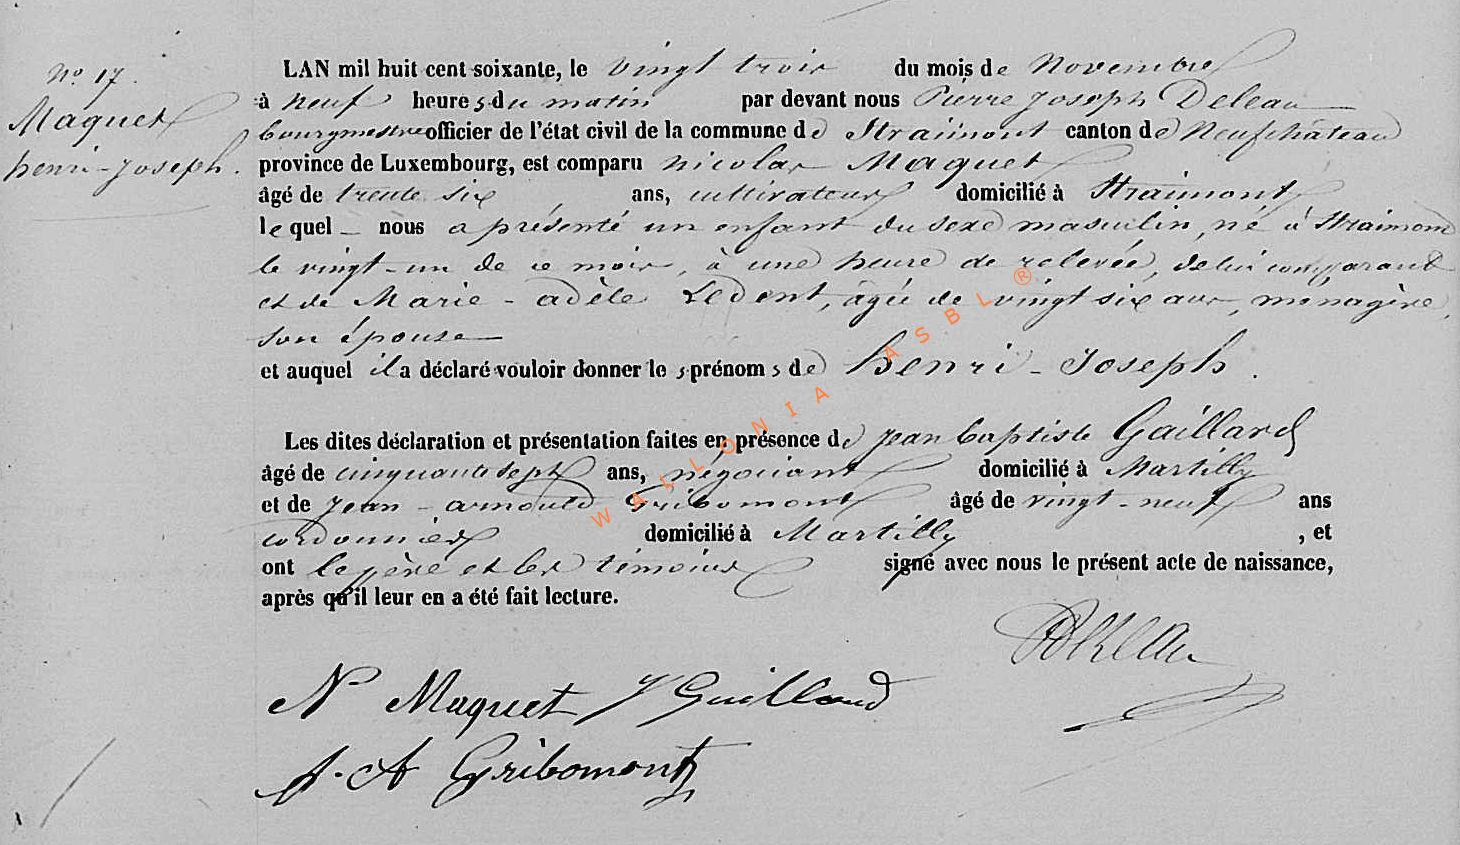 No 17.
Maquet
henri-Joseph.
LAN mil huit cent soixante, le vingt trois du mois de Novembre
à neuf heures du matin par devant nous Pierre Joseph Deleau
bourgmestre officier de l'état civil de la commune de Straimont canton de Neufchâteau
province de Luxembourg, est comparu nicolas Maquet
âgé de trente six ans, cultivateur domicilié à Straimont
lequel nous a présenté un enfant du sexe masculin, né à Straimont
le vingt-un de ce mois, à une heure de relevée, de lui comparant
et de Marie-adèle Ledent, âgée de vingt six ans, ménagère,
son épouse
et auquel il a déclaré vouloir donner les prénoms de henri-Joseph.
Les dites déclaration et présentation faites en présence de jean baptiste Gaillard
âgé de cinquante sept ans, négociant domicilié à Martilly
et de jean-arnould Gribomont âgé de vingt-neuf ans
cordonnier domicilié à Martilly, et
ont le père et les témoins signé avec nous le présent acte de naissance,
après qu'il leur en a été fait lecture.
PJDeleau
N Maquet J Gaillard
J. A Gribomont
WALLONIA ASBL ®